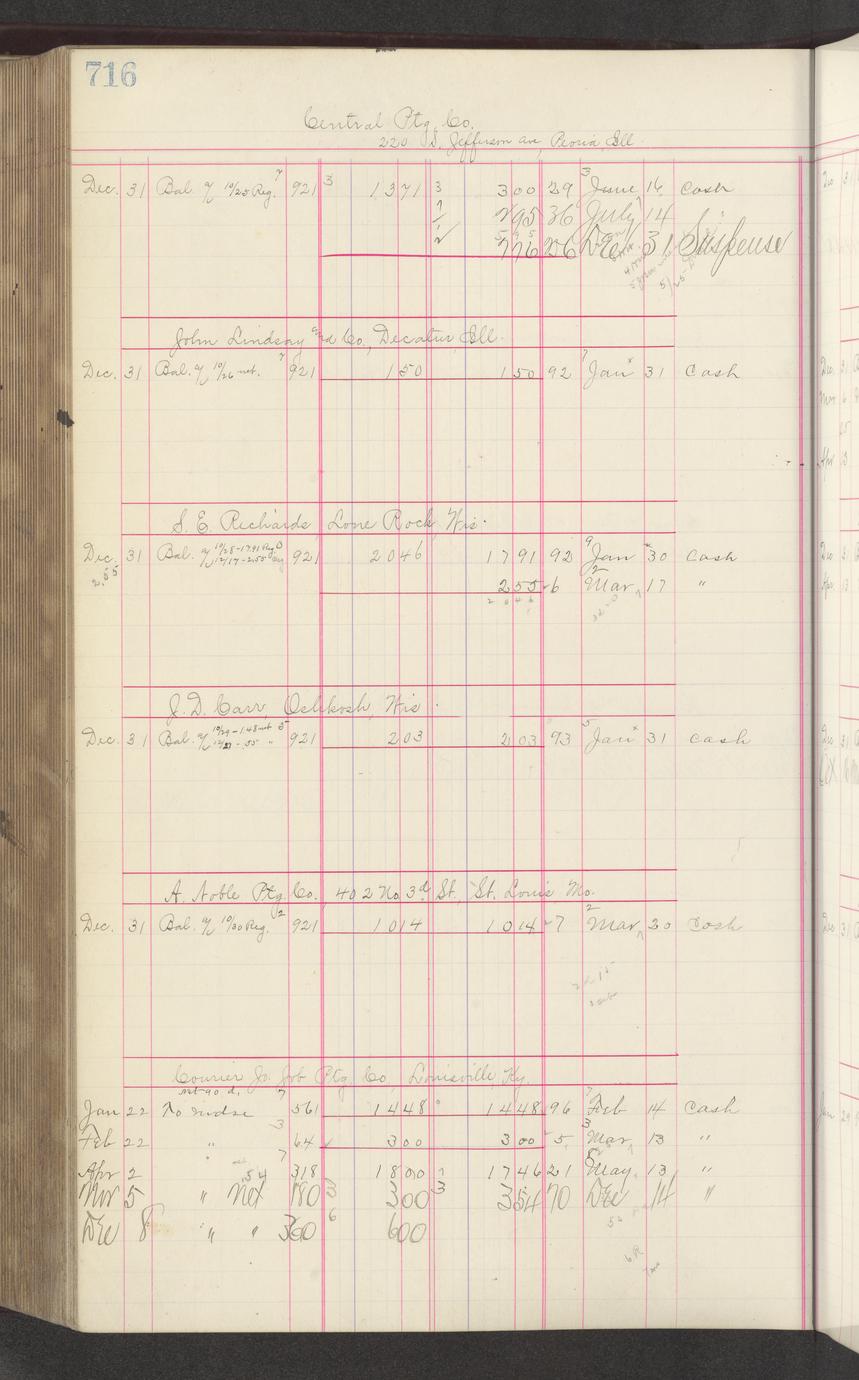 716
Central Ptg. Co.
220 S. Jefferson ave, Peoria, Ill.
Dec. 31 Bal. of 10/25 Reg. 7 921 3 1371 3 300 29 3 June 16 Cash
7 295 36 July 14
776 26 Dec 31 Suspense
John Lindsay and Co., Decatur Ill.
Dec. 31 Bal. of 10/26 net. 7 921 150 150 92 7 Jan 31 Cash
S. E. Richards, Lone Rock, Wis.
Dec. 31 Bal. of 10/28-17.91 Reg. 921 2046 1791 92 9 Jan 30 Cash
12/17-2.55
2.55
255 6 2 Mar 17 "
2046
J. D. Carr, Oshkosh, Wis.
Dec. 31 Bal. of 10/29-1.48 net 5 921 203 203 93 5 Jan 31 Cash
12/27-.55 "
A. Noble Ptg. Co. 402 No. 3d St., St. Louis Mo.
Dec. 31 Bal. of 10/30 Reg. 2 921 1014 1014 7 2 Mar 20 Cash
Courier Jo. Job Ptg. Co., Louisville, Ky.
net 90 d. 7
Jan 22 To mdse 561 1448 1448 96 7 Feb 14 Cash
Feb 22 " 3 64 300 300 5 3 Mar 13 "
Apr 2 " 7 318 1800 7 1746 21 May 13 "
.54
Nov 5 " Net 180 3 300 3 354 70 Dec 14 "
Dec 8 " " 360 6 600